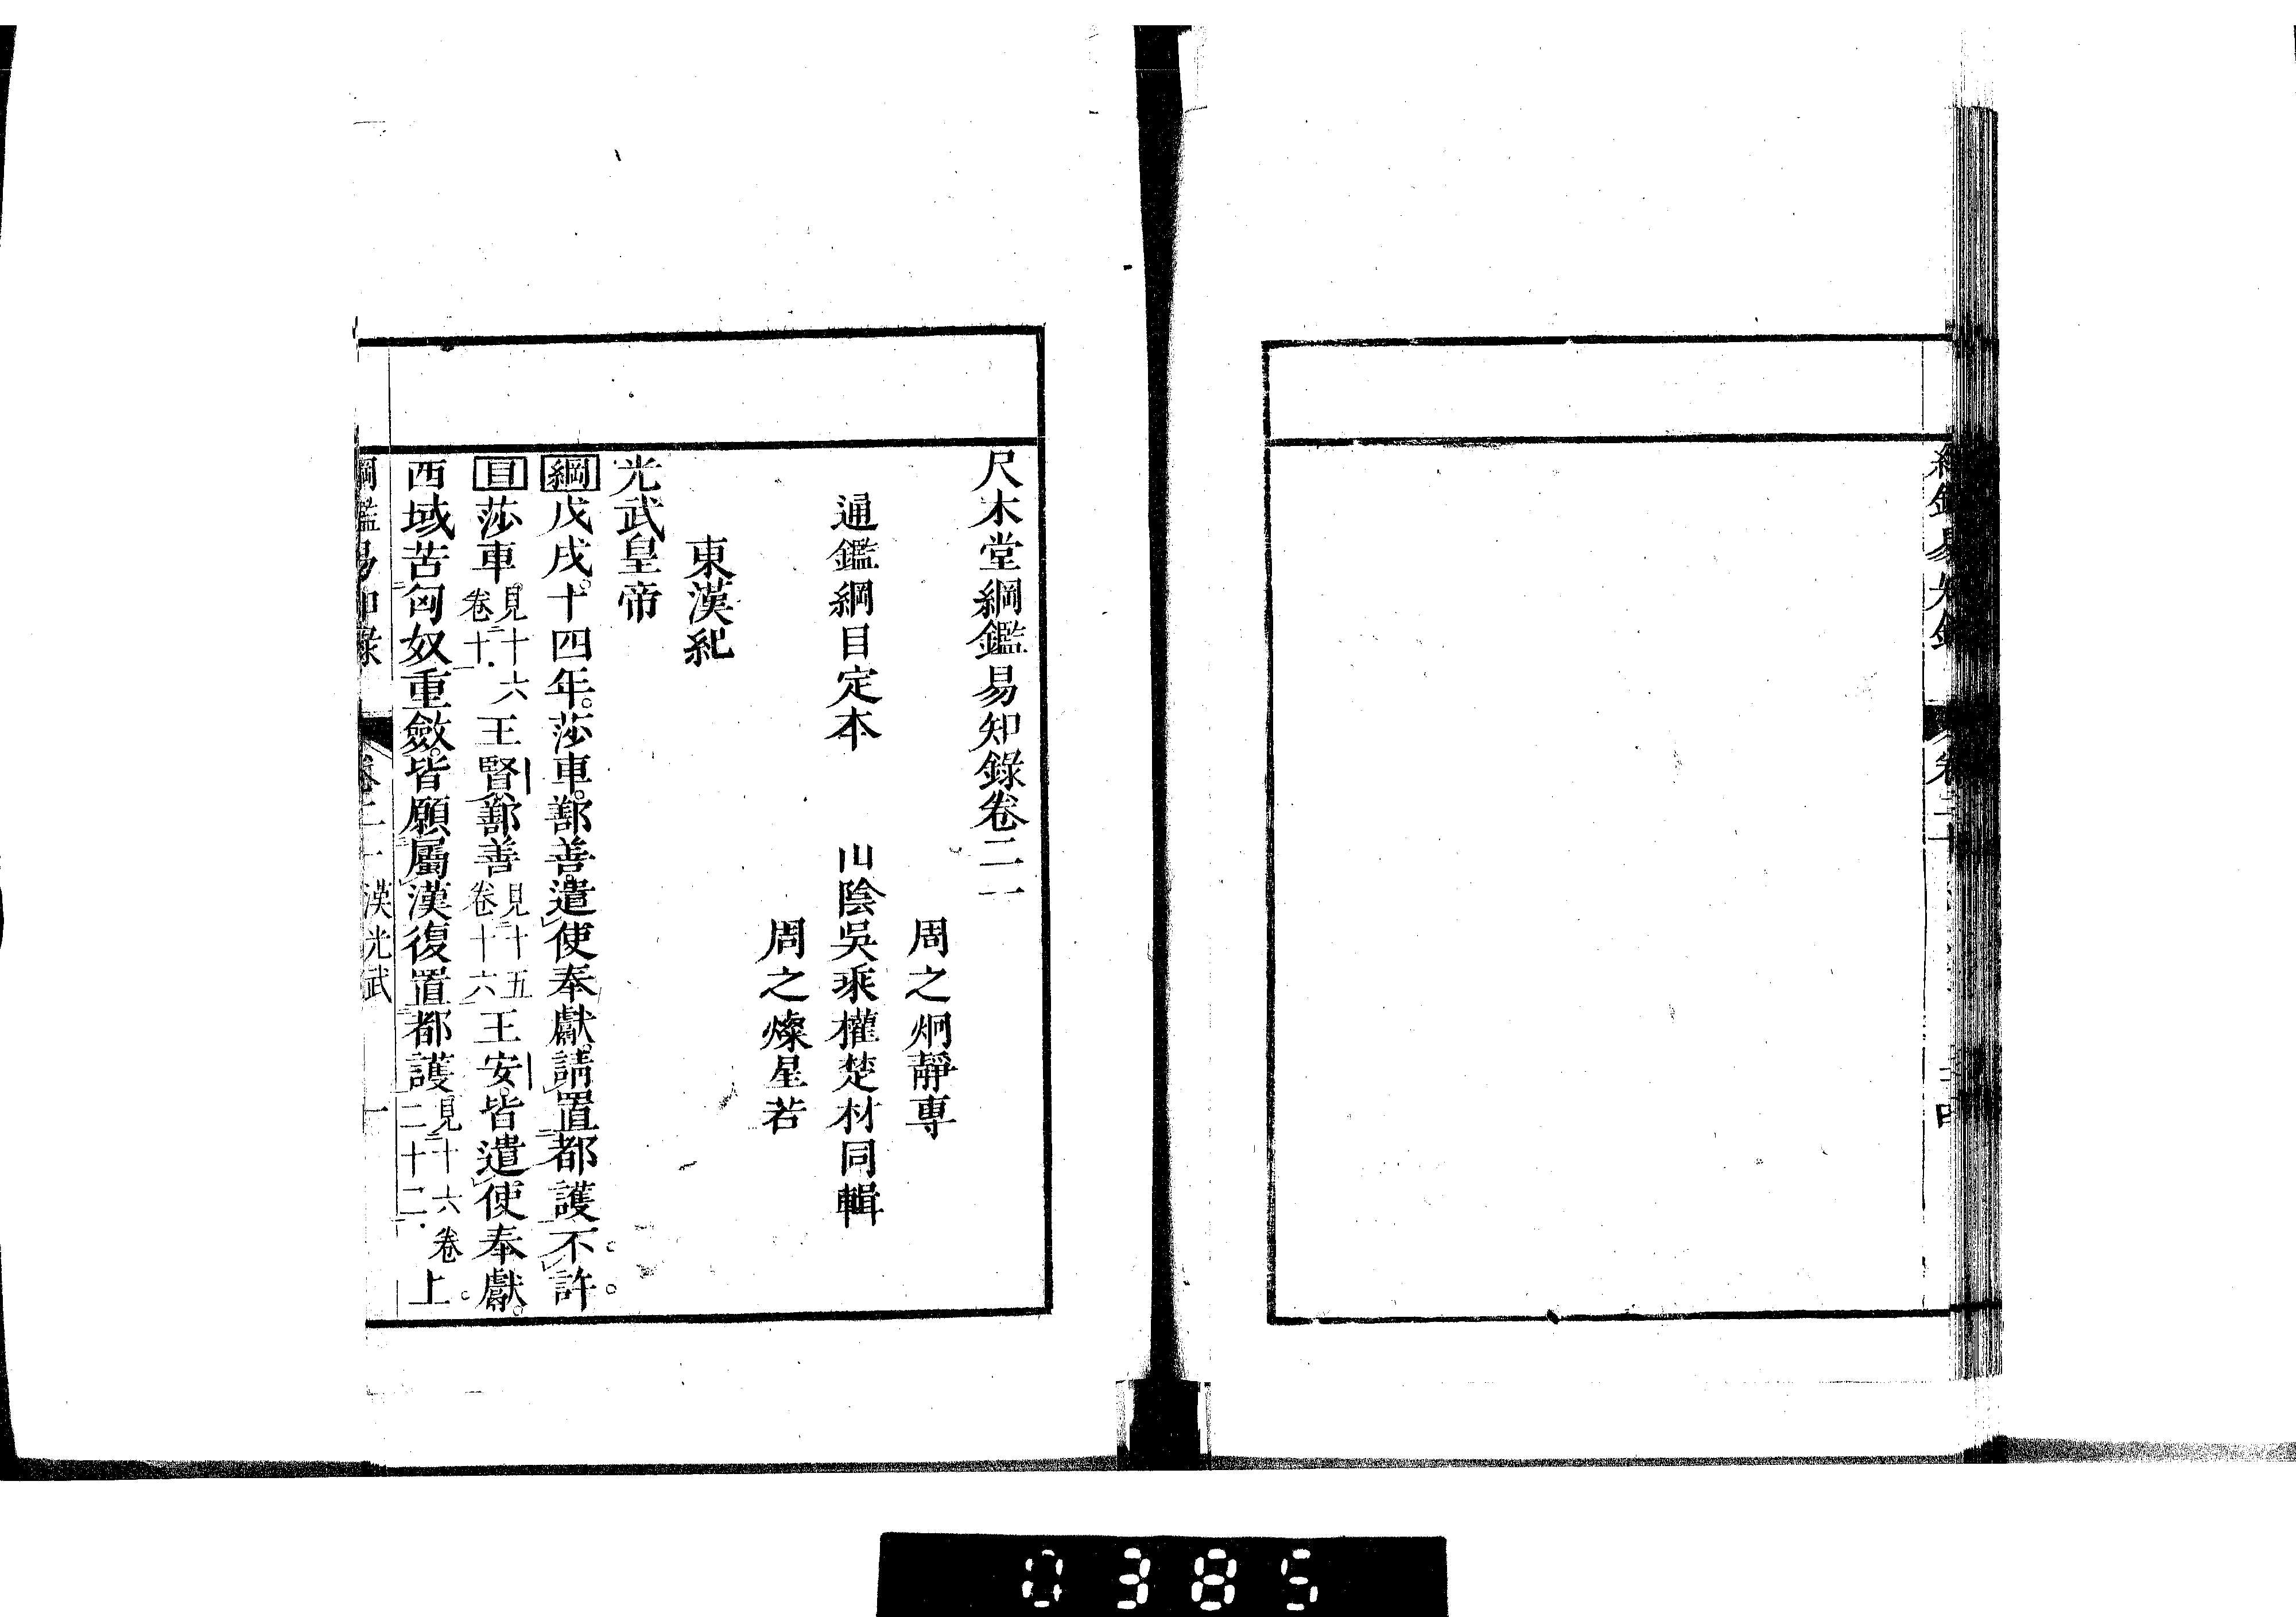 尺木堂綱鑑易知錄卷二一
周之炯靜專
通鑑綱目定本　山陰吳乘權楚材同輯
周之燦星若
東漢紀
光武皇帝
綱戊戌。十四年。莎車。鄯善。遣使奉獻。請置都護。不許。
目莎車。見十六卷十一王賢。鄯善見十五卷十六王安。皆遣使奉獻。
西域苦匈奴重斂。皆願屬漢。復置都護見十六卷二十二上
綱鑑易知錄　卷二十一　漢光武　一
0385